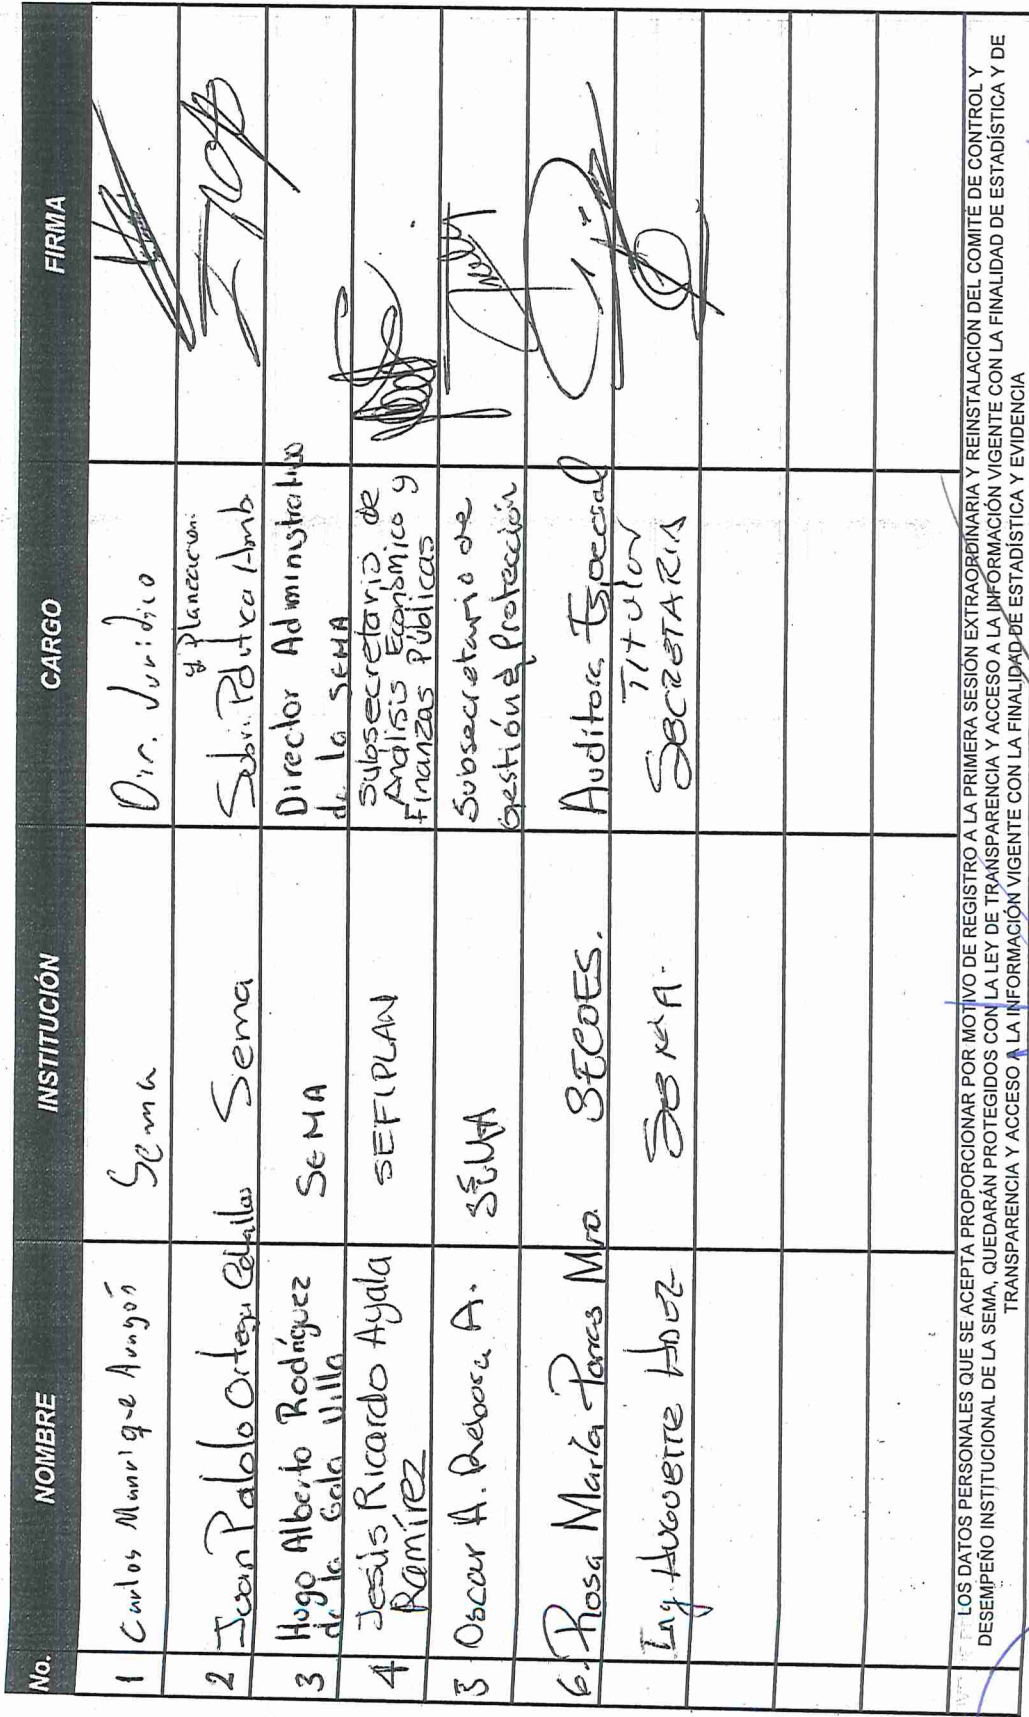 No. NOMBRE INSTITUCIÓN CARGO FIRMA
1 Carlos Manrique Aragón Sema Dir. Jurídico
y Planeación
2 Juan Pablo Ortega Sema Subsri. Política Amb.
3 Hugo Alberto Rodríguez SEMA Director Administrativo
de la Gala Villa de la SEMA
4 Jesús Ricardo Ayala SEFIPLAN Subsecretario de
Ramírez Análisis Económico y
Finanzas Públicas
5 Oscar A. Rebora A. SEMA Subsecretario de
Gestión y Protección
6. Rosa María Torres Mro. SECOES. Auditora Especial
Ing. HUGUETTE HDEZ SEMA. TITULAR
SECRETARIA
LOS DATOS PERSONALES QUE SE ACEPTA PROPORCIONAR POR MOTIVO DE REGISTRO A LA PRIMERA SESIÓN EXTRAORDINARIA Y REINSTALACIÓN DEL COMITÉ DE CONTROL Y
DESEMPEÑO INSTITUCIONAL DE LA SEMA, QUEDARÁN PROTEGIDOS CON LA LEY DE TRANSPARENCIA Y ACCESO A LA INFORMACIÓN VIGENTE CON LA FINALIDAD DE ESTADÍSTICA Y DE
TRANSPARENCIA Y ACCESO A LA INFORMACIÓN VIGENTE CON LA FINALIDAD DE ESTADÍSTICA Y EVIDENCIA